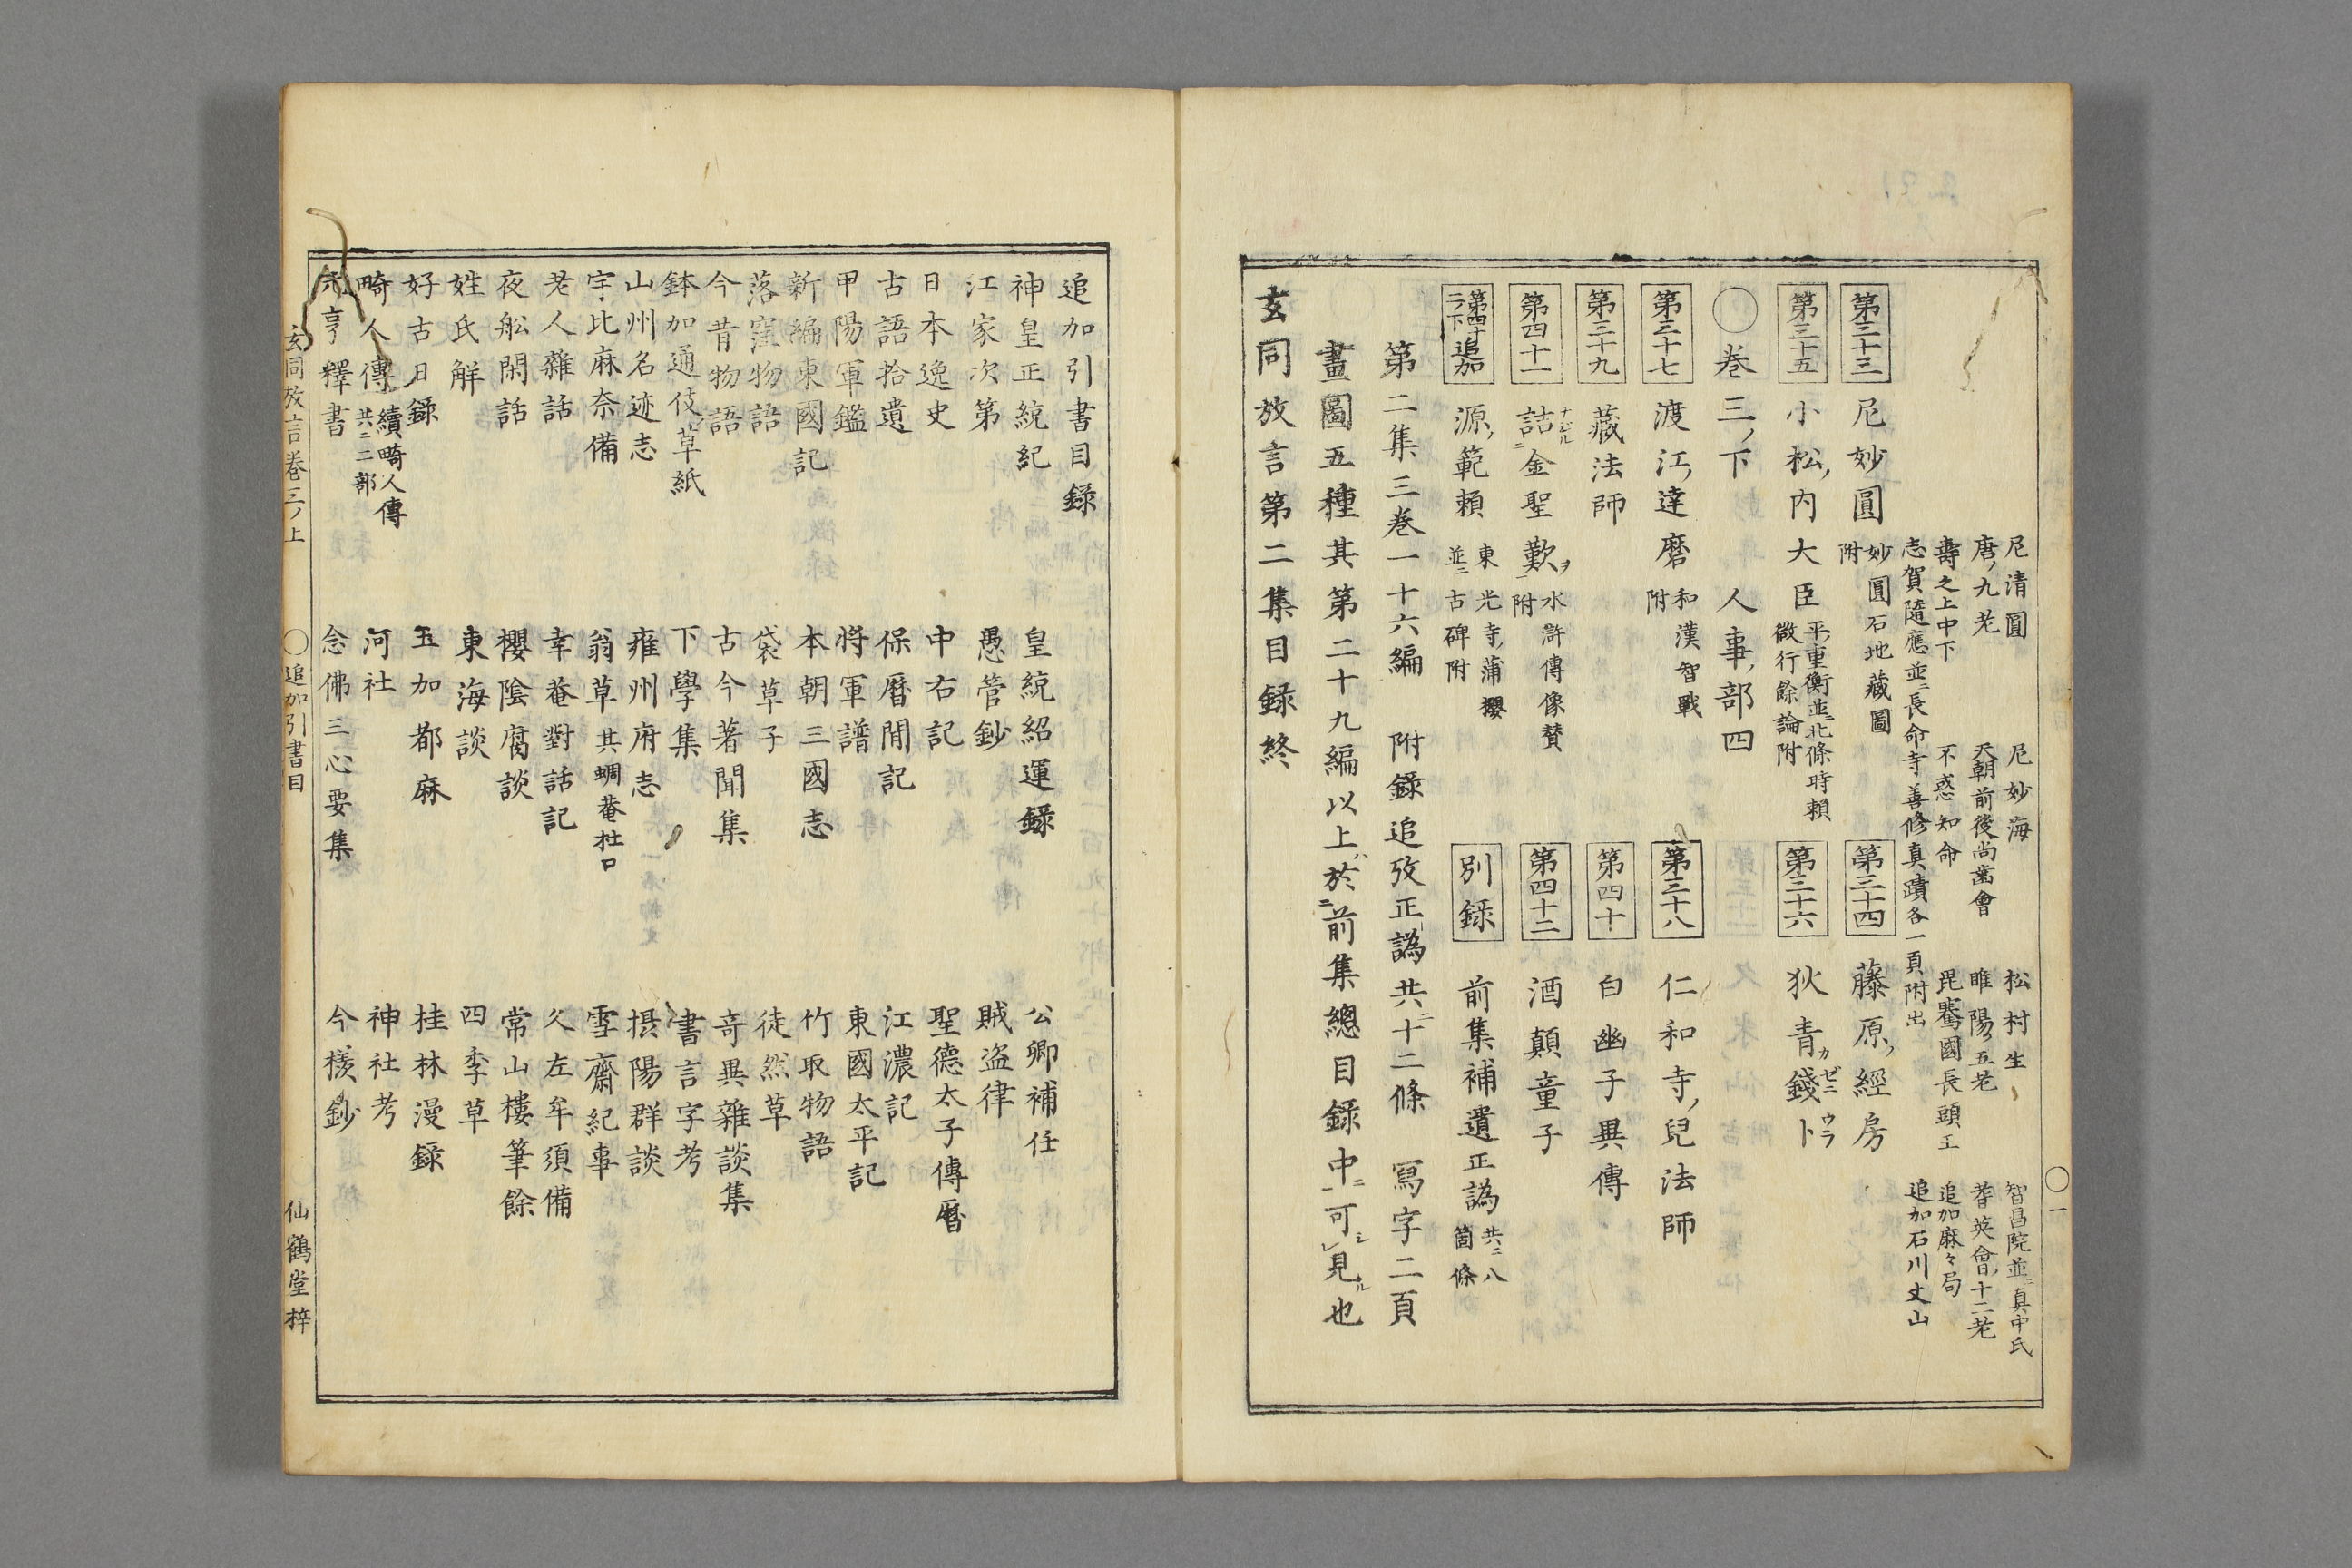 尼清圓 尼妙海 松村生 智昌院並ニ真中氏
唐ノ九老 天朝前後尚齒會 睢陽五老 耆英會ノ十二老
壽之上中下 不惑知命 毘騫國長頭王 追加麻々局
志賀隨應並ニ長命寺善修真蹟各一頁附出 追加石川丈山
第三十三 尼妙圓 妙圓石地藏圖附 第三十四 藤原ノ經房
第三十五 小松ノ内大臣 平ノ重衡並ニ北條時頼微行餘論附 第三十六 狄青カ錢ゼニ卜ウラ
〇巻三ノ下 人事ノ部四
第三十七 渡江ノ達磨 和漢智戰附 第三十八 仁和寺ノ兒法師
第三十九 藏法師 第四十 白幽子異傳
第四十一 詰ナジル二金聖歎ヲ一 水滸傳像贊附 第四十二 酒顛童子
第四十追加ニラ下 源ノ範頼 東光寺ノ蒲櫻並ニ古碑附 別録 前集補遺正譌共ニ八箇條
第二集三巻一十六編 附録追攷正譌共ニ十二條 寫字二頁
畫圖五種其第二十九編以上ハ於ニ前集總目録中ニ一可シレ見ル也
玄同放言第二集目録終
〇一
追加引書目録
神皇正統紀 皇統紹運録 公卿補任
江家次第 愚管鈔 賊盗律
日本逸史 中右記 聖德太子傳暦
古語拾遺 保暦間記 江濃記
甲陽軍鑑 將軍譜 東國太平記
新編東國記 本朝三國志 竹取物語
落窪物語 袋草子 徒然草
今昔物語 古今著聞集 奇異雜談集
鉢加通伎草紙 下學集 書言字考
山州名迹志 雍州府志 摂陽群談
宇比麻奈備 翁草其蜩菴杜口 雪齋紀事
老人雜話 幸菴對話記 久左牟須備
夜舩閑話 櫻陰腐談 常山樓筆餘
姓氏解 東海談 四季草
好古日録 玉加都麻 桂林漫録
畸人傳 續畸人傳共ニ二部 河社 神社考
元亨釋書 念佛三心要集 今様鈔
玄同放言巻三ノ上 〇追加引書目 仙鶴堂梓